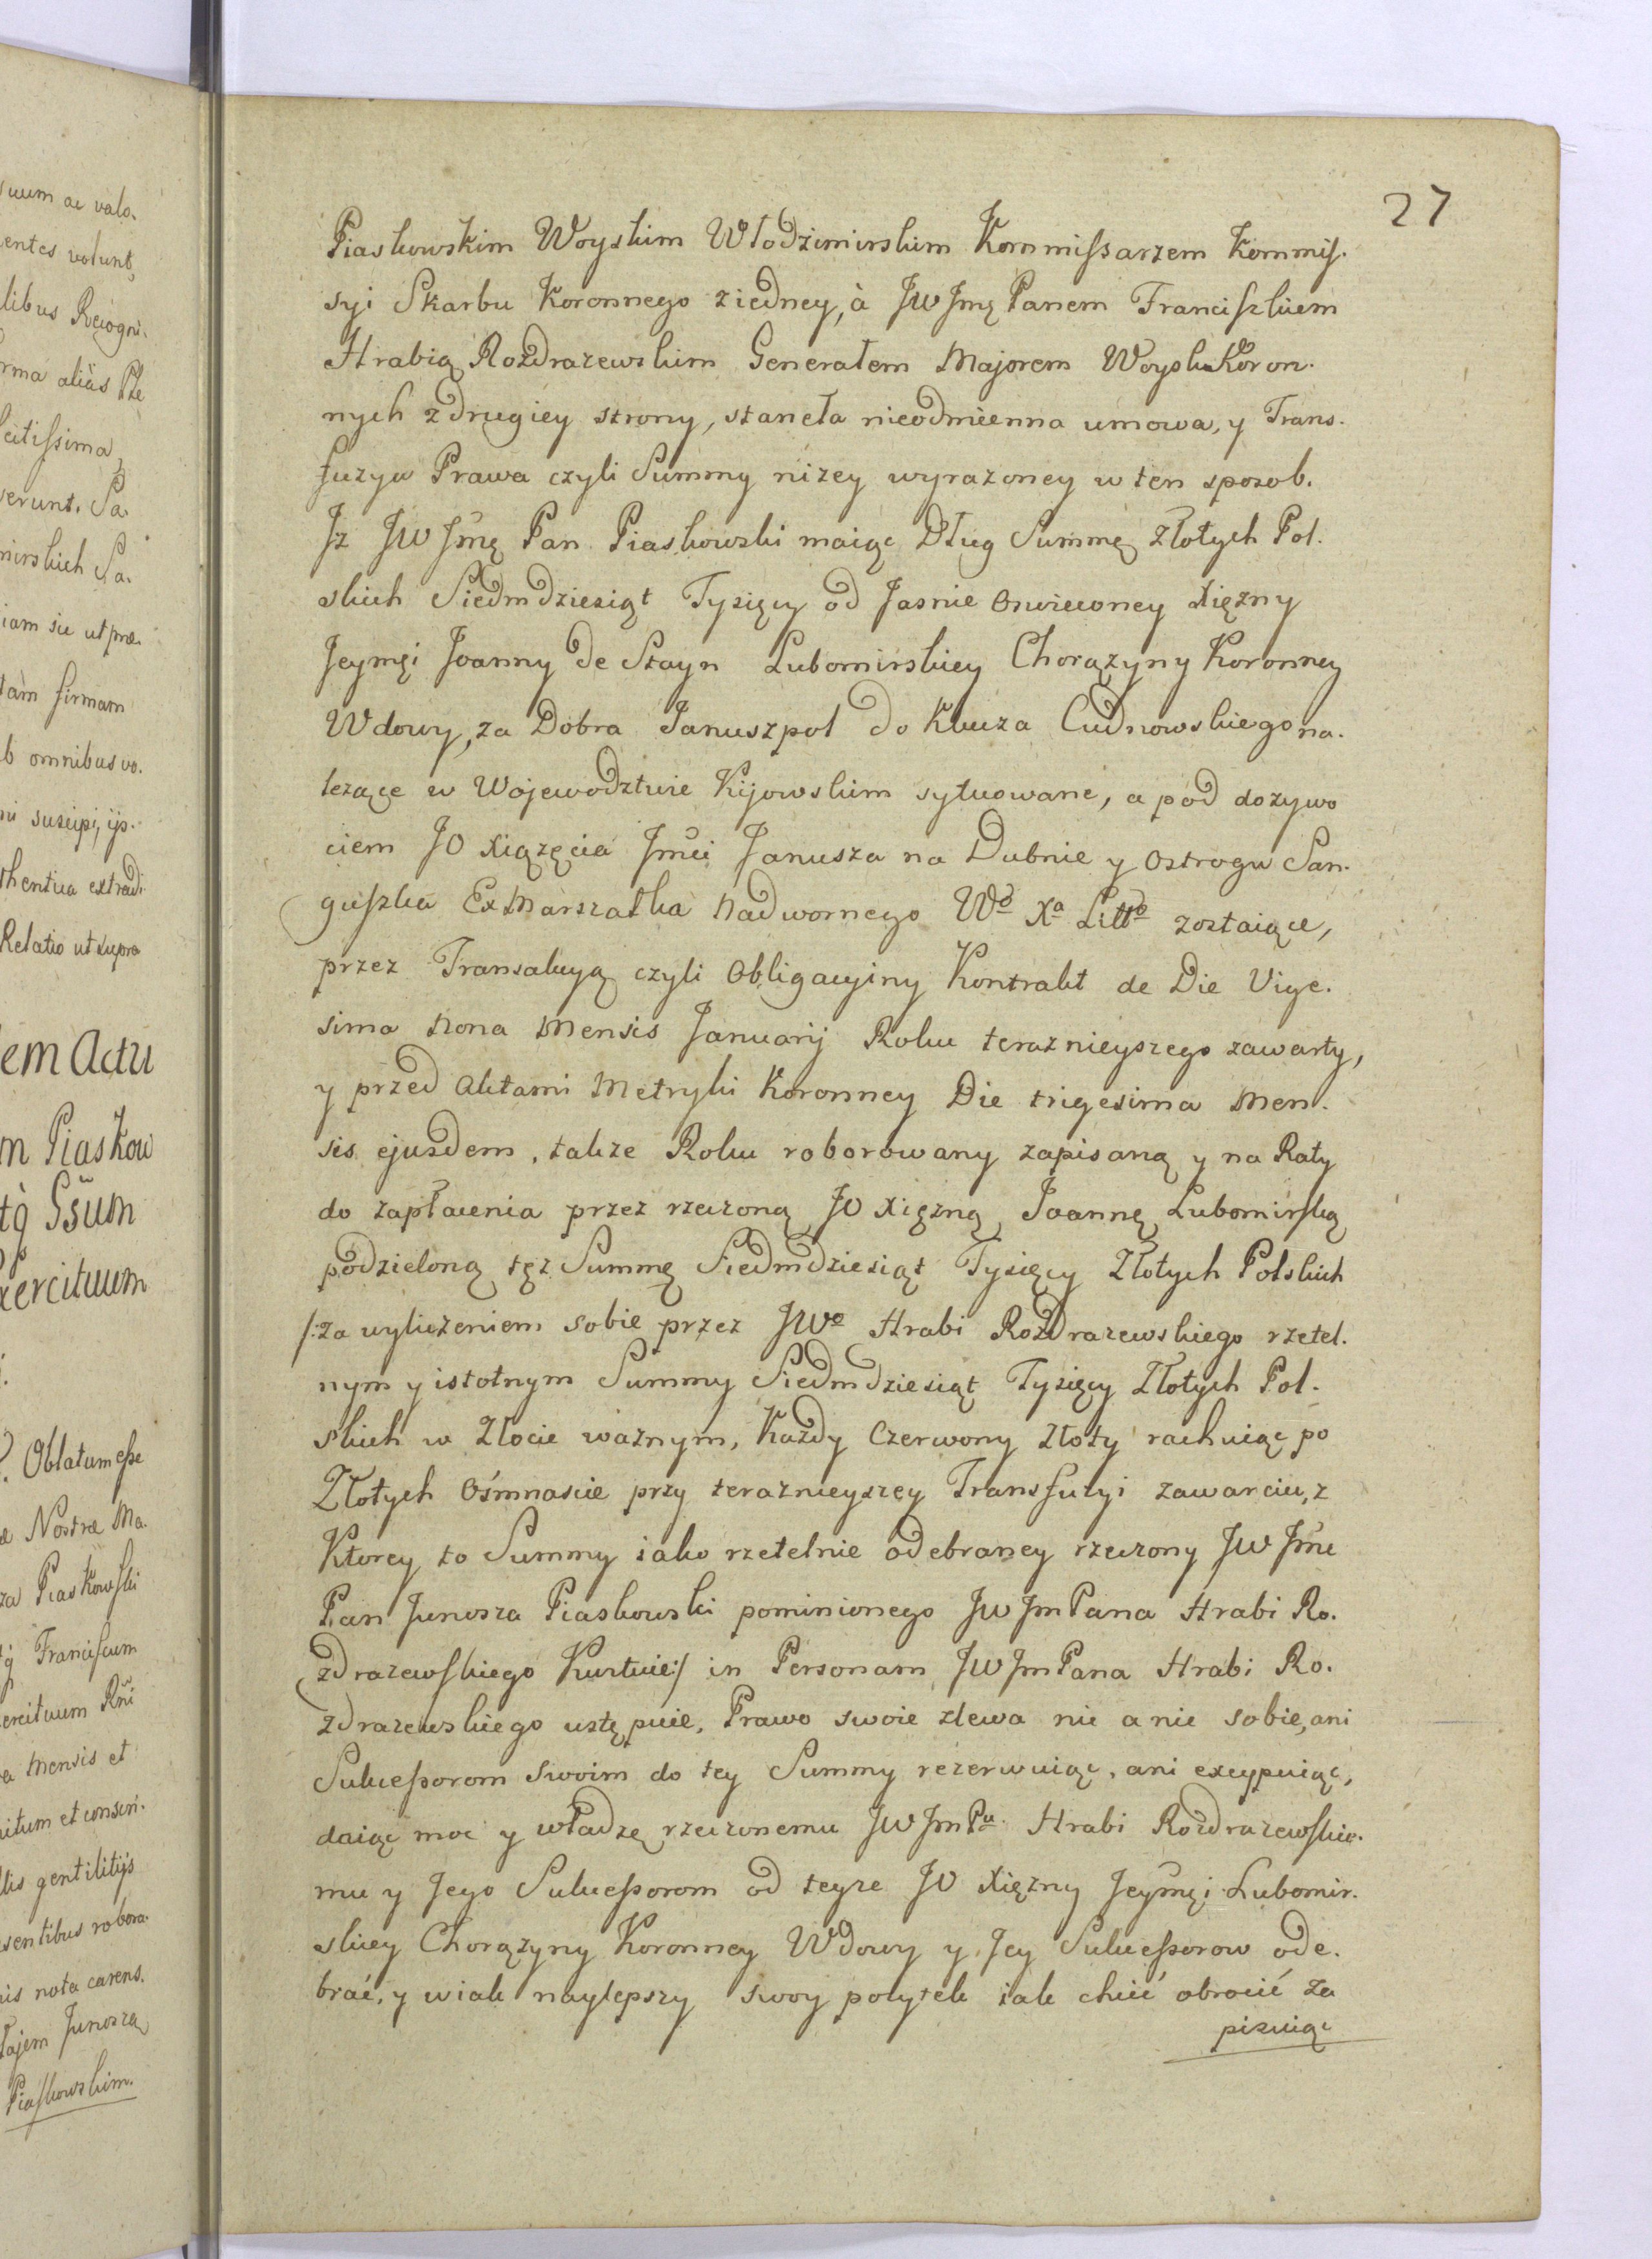 27
Piaskowskim Woyskim Włodzimirskim Kommissarzem Kommis.
syi Skarbu Koronnego z iedney, à JW Jmę Panem Franciszkiem
Hrabią Rozdrazewskim Generałem Majorem Woysk Koron.
nych z drugiey strony, stanęła nieodmienna umowa, y Trans.
fuzya Prawa czyli Summy nizey wyrazoney w ten sposob.
Jz JW Jmę Pan Piaskowski maiąc Dług Summę Złotych Pol.
skich Siedmdziesiąt Tysięcy od Jasnie Oswieconey Xięzny
Jeymęi Joanny de Stayn Lubomirskiey Chorązyny Koronney
Wdowy, za Dobra Januszpol do Klucza Cudnowskiego na.
lezące w Wojewodztwie Kijowskim sytuowane, a pod dozywo
ciem JO Xiązęcia Jmci Janusza na Dubnie y Ostrogu San.
guszka Ex Marszałka Nadwornego Wo Xa Litto zostaiące,
przez Transakcyą czyli Obligacyiny Kontrakt de Die Vige.
sima Nona Mensis Januarij Roku teraznieyszego zawarty,
y przed Aktami Metryki Koronney Die trigesima Men.
sis ejusdem, takze Roku roborowany zapisaną y na Raty
do zapłacenia przez rzeczoną JO Xięzną Joannę Lubomirską
podzieloną tęz Summę Siedmdziesiąt Tysięcy Złotych Polskich
/: za wyliczeniem sobie przez JWo Hrabi Rozdrazewskiego rzetel.
nym y istotnym Summy Siedmdziesiąt Tysięcy Złotych Pol.
skich w Złocie waznym, Kazdy Czerwony Złoty rachuiąc po
Złotych Ośmnascie przy teraznieyszey Transfuzyi zawarciu, z
Ktorey to Summy iako rzetelnie odebraney rzeczony JW Jmc
Pan Junosza Piaskowski pominionego JW Jm Pana Hrabi Ro.
zdrazewskiego Kwituie :/ in Personam JW Jm Pana Hrabi Ro.
zdrazewskiego ustępuie, Prawo swoie zlewa nic a nic sobie, ani
Sukcessorom swoim do tey Summy rezerwuiąc, ani excypuiąc,
daiąc moc y władzę rzeczonemu JW Jm Pu Hrabi Rozdrazewskie.
mu y Jego Sukcessorom od teyze JO Xięzny Jeymęi Lubomir.
skiey Chorązyny Koronney Wdowy y Jey Sukcessorow ode.
brać, y w iak naylepszy swoy pozytek iak chcić obrocić za
pisuiąc